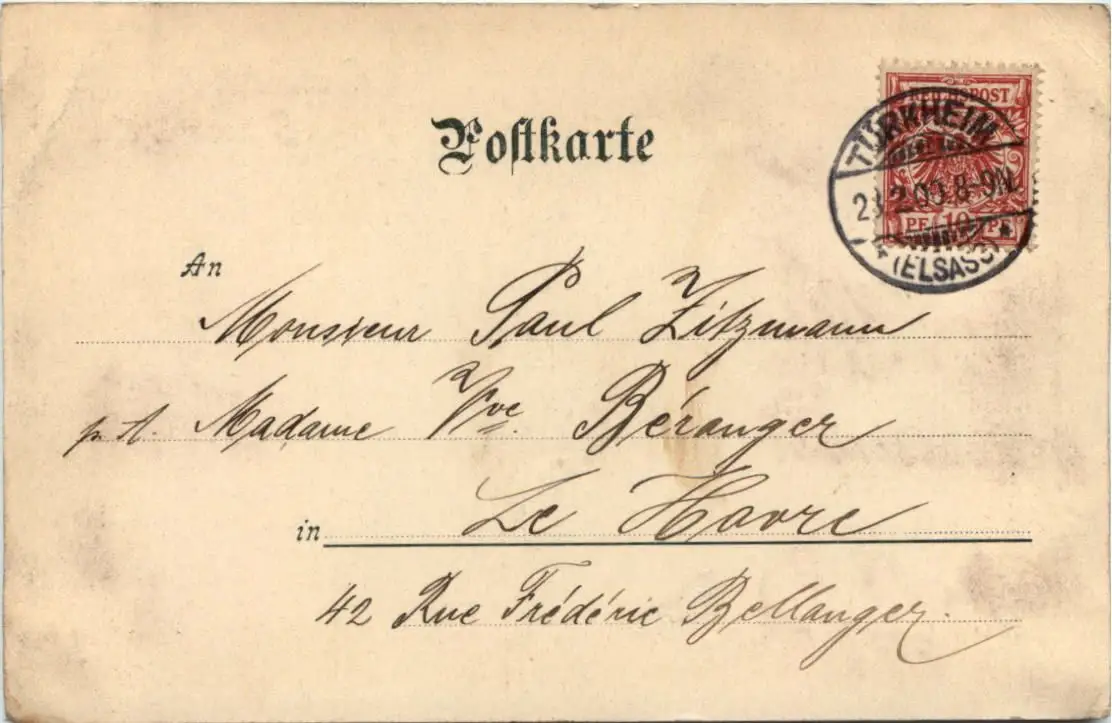 Postkarte
REICHSPOST
TÜRKHEIM
2.00. 8-9N.
PF 10 PF
(ELSASS)
An
Monsieur Paul Zitzmann
p. A. Madame Vve. Béranger
in Le Havre
42 Rue Frédéric Bellanger.